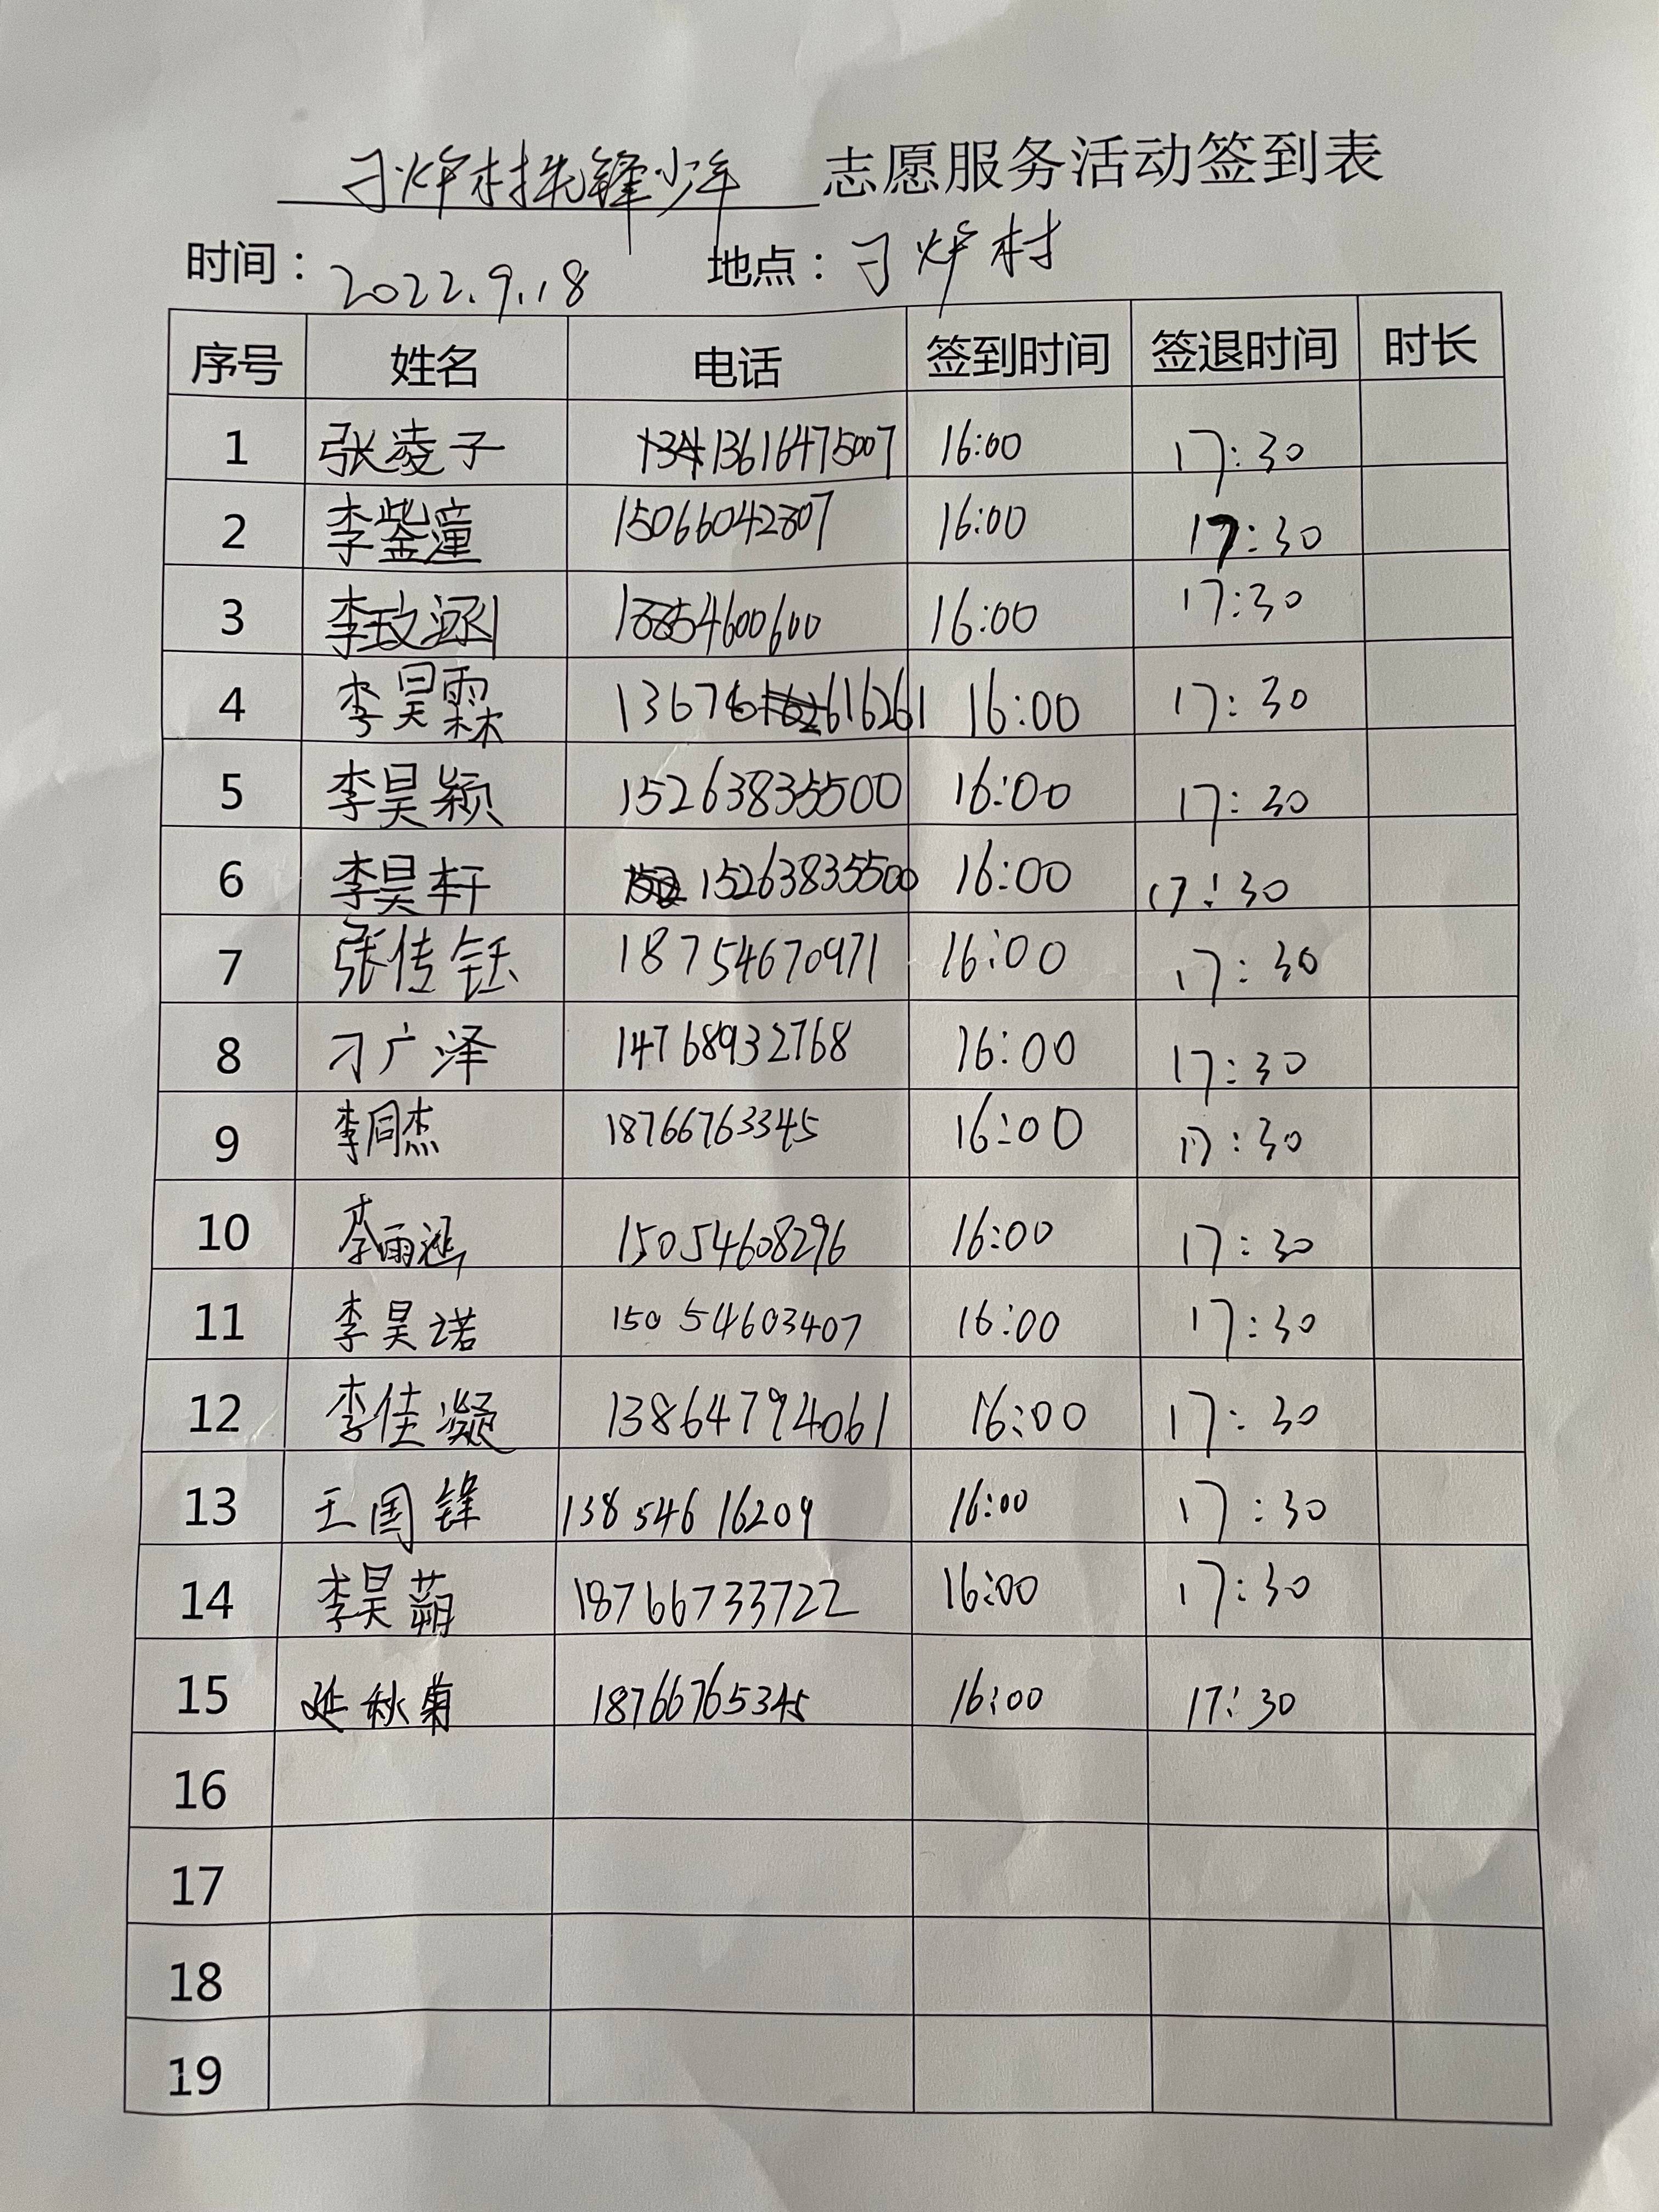 刁炉村先锋少年 志愿服务活动签到表
时间：2022.9.18 地点：刁炉村
序号 姓名 电话 签到时间 签退时间 时长
1 张凌子 13616475007 16:00 17:30
2 李蓥潼 15066042807 16:00 17:30
3 李玟涵 18854600600 16:00 17:30
4 李昊霖 13676616261 16:00 17:30
5 李昊颖 15263835500 16:00 17:30
6 李昊轩 15263835500 16:00 17:30
7 张传钰 18754670971 16:00 17:30
8 刁广泽 14768932768 16:00 17:30
9 李同杰 18766763345 16:00 17:30
10 李雨涵 15054608296 16:00 17:30
11 李昊诺 15054603407 16:00 17:30
12 李佳凝 13864794061 16:00 17:30
13 王国锋 13854616209 16:00 17:30
14 李昊蒴 18766733722 16:00 17:30
15 延秋菊 18766765345 16:00 17:30
16
17
18
19